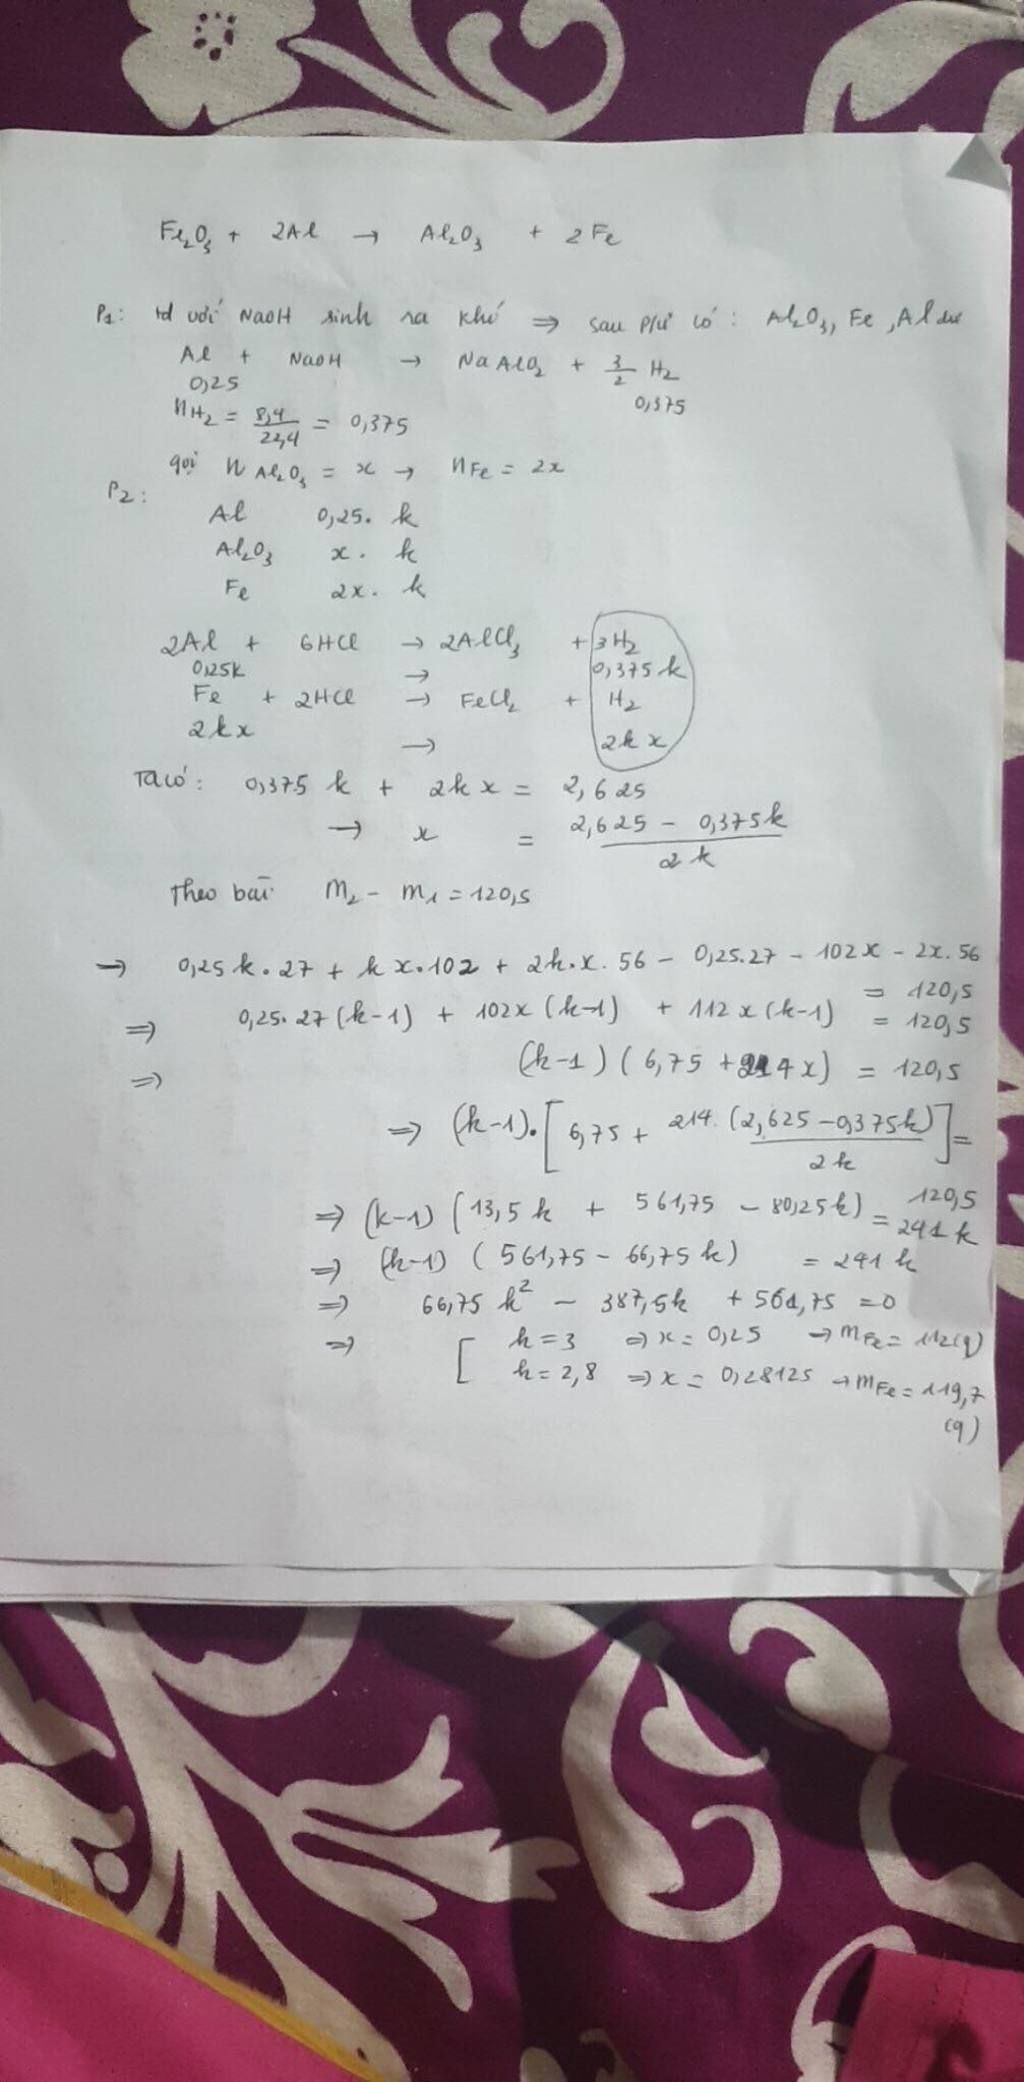 Fe₂O₃ + 2Al → Al₂O₃ + 2Fe
P1: td với NaOH sinh ra khí ⇒ sau p/ư có: Al₂O₃, Fe, Al dư
Al + NaOH → NaAlO₂ + 3/2 H₂
0,25 0,375
nH₂ = 8,4/22,4 = 0,375
gọi n Al₂O₃ = x → nFe = 2x
P2:
Al 0,25. k
Al₂O₃ x. k
Fe 2x. k
2Al + 6HCl → 2AlCl₃ + 3H₂
0,25k → 0,375k
Fe + 2HCl → FeCl₂ + H₂
2kx → 2kx
Ta có: 0,375 k + 2kx = 2,625
→ x = (2,625 - 0,375k)/2k
Theo bài m₂ - m₁ = 120,5
→ 0,25k.27 + kx.102 + 2k.x.56 - 0,25.27 - 102x - 2x.56 = 120,5
⇒ 0,25.27(k-1) + 102x(k-1) + 112x(k-1) = 120,5
⇒ (k-1)(6,75 + 214x) = 120,5
⇒ (k-1).[6,75 + 214.(2,625 - 0,375k)/2k] = 120,5
⇒ (k-1)(13,5k + 561,75 - 80,25k) = 241k
⇒ (k-1)(561,75 - 66,75k) = 241k
⇒ 66,75k² - 387,5k + 561,75 = 0
⇒ [ k = 3 ⇒ x = 0,25 → mFe = 112(g)
k = 2,8 ⇒ x = 0,28125 → mFe = 119,7 (g)